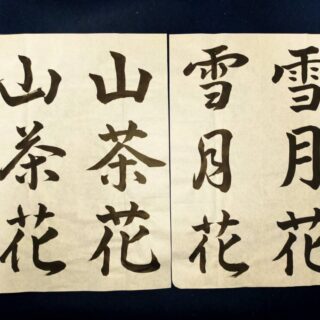 雪月花
雪月花
山茶花
山茶花